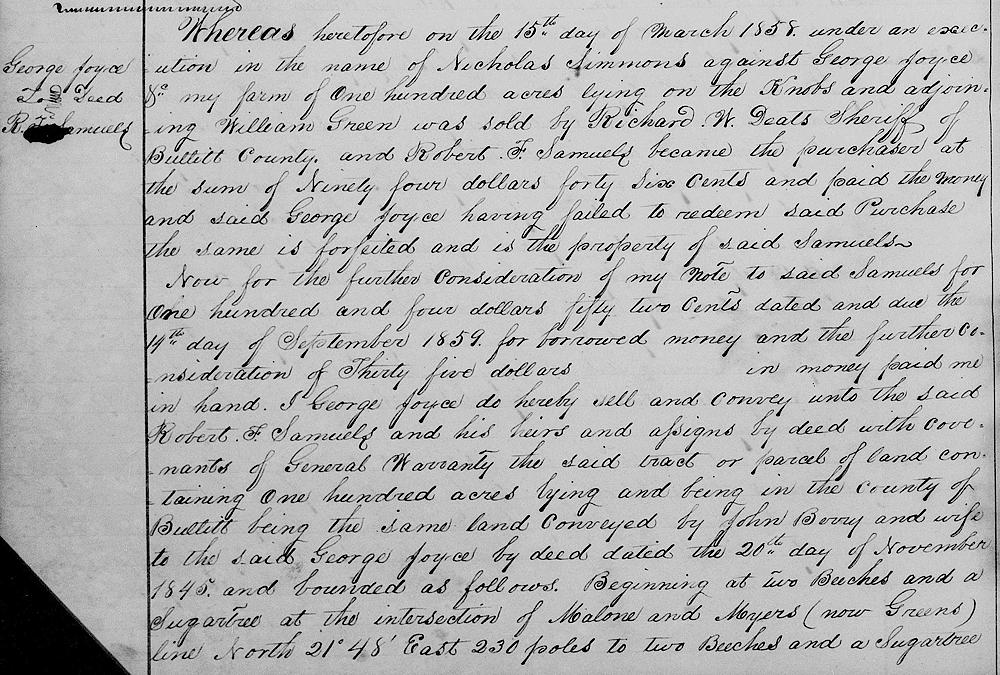 George Joyce
To Deed
R. F. Samuels
Whereas heretofore on the 15th day of March 1858. under an exec-
-ution in the name of Nicholas Simmons against George Joyce
&c my farm of One hundred acres lying on the Knobs and adjoin-
-ing William Green was sold by Richard. W. Deats Sheriff of
Bullitt County. and Robert. F. Samuels became the purchaser at
the sum of Ninety four dollars forty six Cents and paid the money
and said George Joyce having failed to redeem said Purchase
the same is forfeited and is the property of said Samuels
Now for the further Consideration of my Note to said Samuels for
One hundred and four dollars fifty two Cents dated and due the
14th day of September 1859. for borrowed money and the further Co-
-nsideration of Thirty five dollars in money paid me
in hand. I George Joyce do hereby sell and Convey unto the said
Robert. F. Samuels and his heirs and assigns by deed with Cove-
-nants of General Warranty the said tract or parcel of land con-
-taining One hundred acres lying and being in the County of
Bullitt being the same land Conveyed by John Berry and wife
to the said George Joyce by deed dated the 20th day of November
1845. and bounded as follows. Beginning at two Beeches and a
Sugartree at the intersection of Malone and Myers (now Greens)
line North 21° 48' East 230 poles to two Beeches and a Sugartree